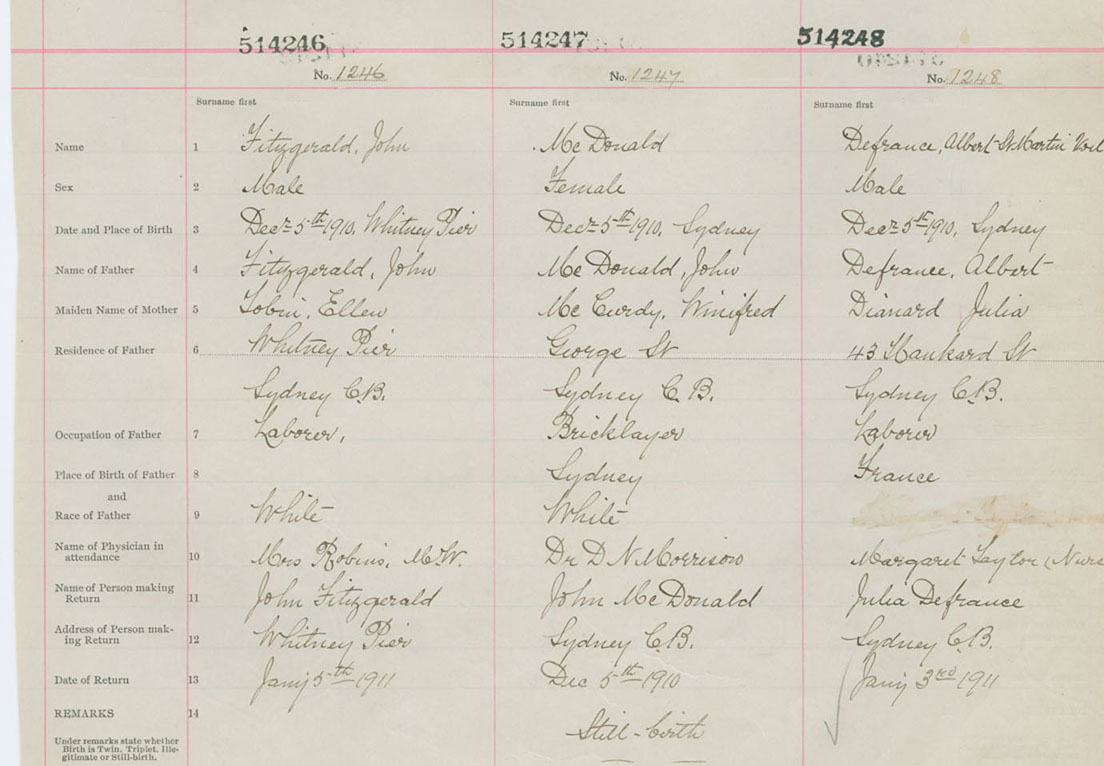 514246 514247 514248
No. 1246 No. 1247 No. 1248
Surname first Surname first Surname first
Name 1 Fitzgerald, John Mc Donald Defrance, Albert St. Martin
Sex 2 Male Female Male
Date and Place of Birth 3 Decr 5th 1910, Whitney Pier Decr 5th 1910, Sydney Decr 5th 1910, Sydney
Name of Father 4 Fitzgerald, John Mc Donald, John Defrance, Albert
Maiden Name of Mother 5 Tobin, Ellen Mc Curdy, Winifred Dianard Julia
Residence of Father 6 Whitney Pier George St 43 Hankard St
Sydney C.B. Sydney C.B. Sydney C.B.
Occupation of Father 7 Laborer, Bricklayer Laborer
Place of Birth of Father 8 Sydney France
and
Race of Father 9 White White
Name of Physician in
attendance 10 Mrs Robins, M.W. Dr D N Morrison Margaret Taylor (Nurs
Name of Person making
Return 11 John Fitzgerald John Mc Donald Julia Defrance
Address of Person mak-
ing Return 12 Whitney Pier Sydney C.B. Sydney C.B.
Date of Return 13 Jany 5th 1911 Dec 5th 1910 Jany 3rd 1911
REMARKS 14
Still-birth
Under remarks state whether
Birth is Twin, Triplet, Ille-
gitimate or Still-birth.